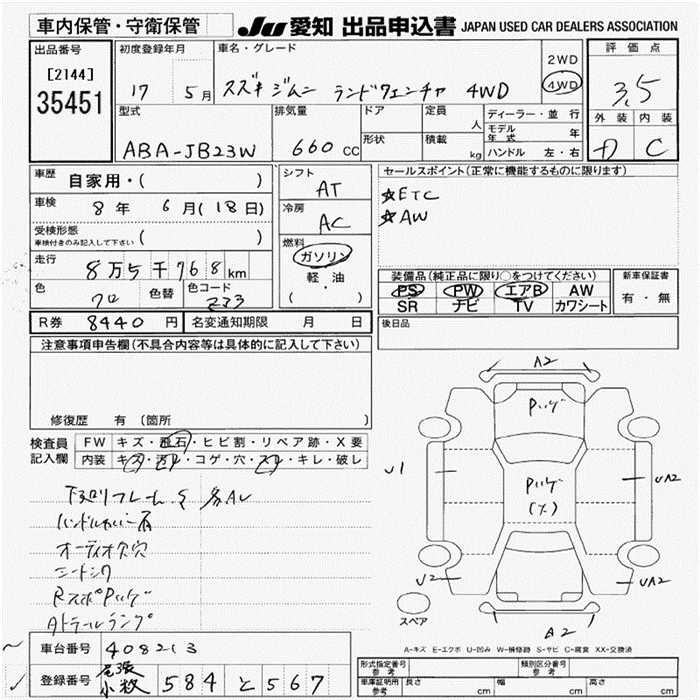 車内保管・守衛保管 JU 愛知 出品申込書 JAPAN USED CAR DEALERS ASSOCIATION
出品番号
[2144]
35451
初度登録年月
17 5月
車名・グレード
スズキ ジムニー ランドヴェンチャ 4WD
2WD
4WD
評価点
3,5
外装 内装
C
型式
ABA-JB23W
排気量
660 cc
ドア
形状
定員
人
積載
kg
ディーラー・並行
モデル年式 年
ハンドル 左・右
車歴
自家用・( )
車検
8年 6月(18日)
受検形態
車検付きのみ記入して下さい ( )
走行
8万5千768km
色
クロ
色替
色コード
ZJ3
シフト
AT
冷房
AC
燃料
ガソリン
軽・油
( )
セールスポイント(正常に機能するものに限ります)
☆ETC
☆AW
装備品(純正品に限り○をつけてください)
PS PW エアB AW
SR ナビ TV カワシート
新車保証書
有・無
R券 8440円
名変通知期限 月 日
後日品
注意事項申告欄(不具合内容等は具体的に記入して下さい)
修復歴 有 (箇所 )
検査員記入欄
FW キズ・飛石・ヒビ割・リペア跡・X要
内装 キズ・汚れ・コゲ・穴・スレ・キレ・破レ
オーディオ欠穴
シートシワ
A2
U1
UA2
U2
UA2
A2
スペア
A-キズ E-エクボ U-凹み W-補修跡 S-サビ C-腐食 XX-交換済
車台番号 408213
登録番号 尾張小牧 584 と 567
形式指定番号 参考
類別区分番号 参考
車庫証明用 参考
長さ cm 幅 cm 高さ cm